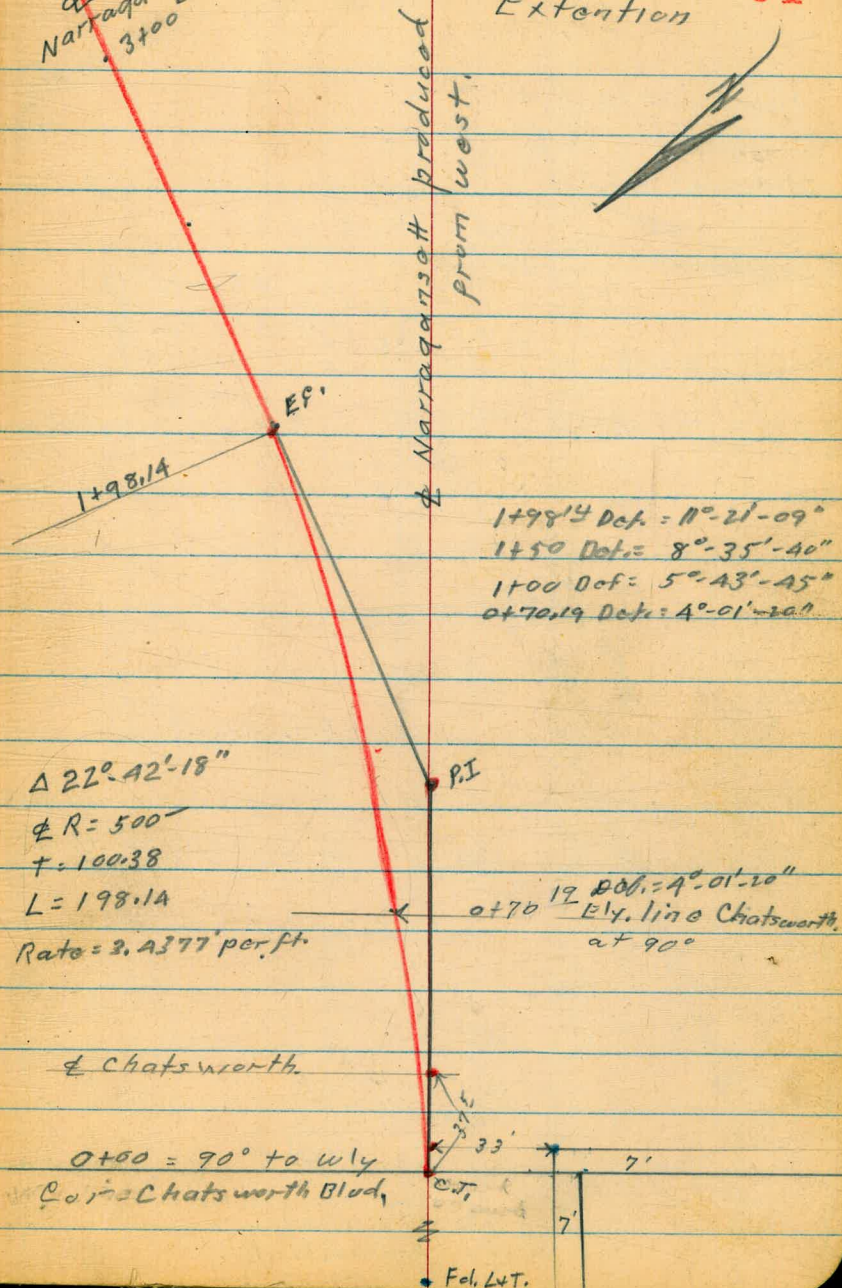 Extention
Narraga
3+00
℄ Narragansett produced
from west.
N
E.C.
1+98.14
1+98.14 Def. = 11°-21'-09"
1+50 Def. = 8°-35'-40"
1+00 Def = 5°-43'-45"
0+70.19 Def. = 4°-01'-20"
P.I
Δ 22°-42'-18"
℄ R = 500
T = 100.38
L = 198.14
Rate = 3.4377' per. ft.
0+70.19 Def. = 4°-01'-20"
Ely. line Chatsworth.
at 90°
℄ Chatsworth.
33'
7'
0+00 = 90° to wly
Cor = Chatsworth Blvd,
7'
Fd. L+T.